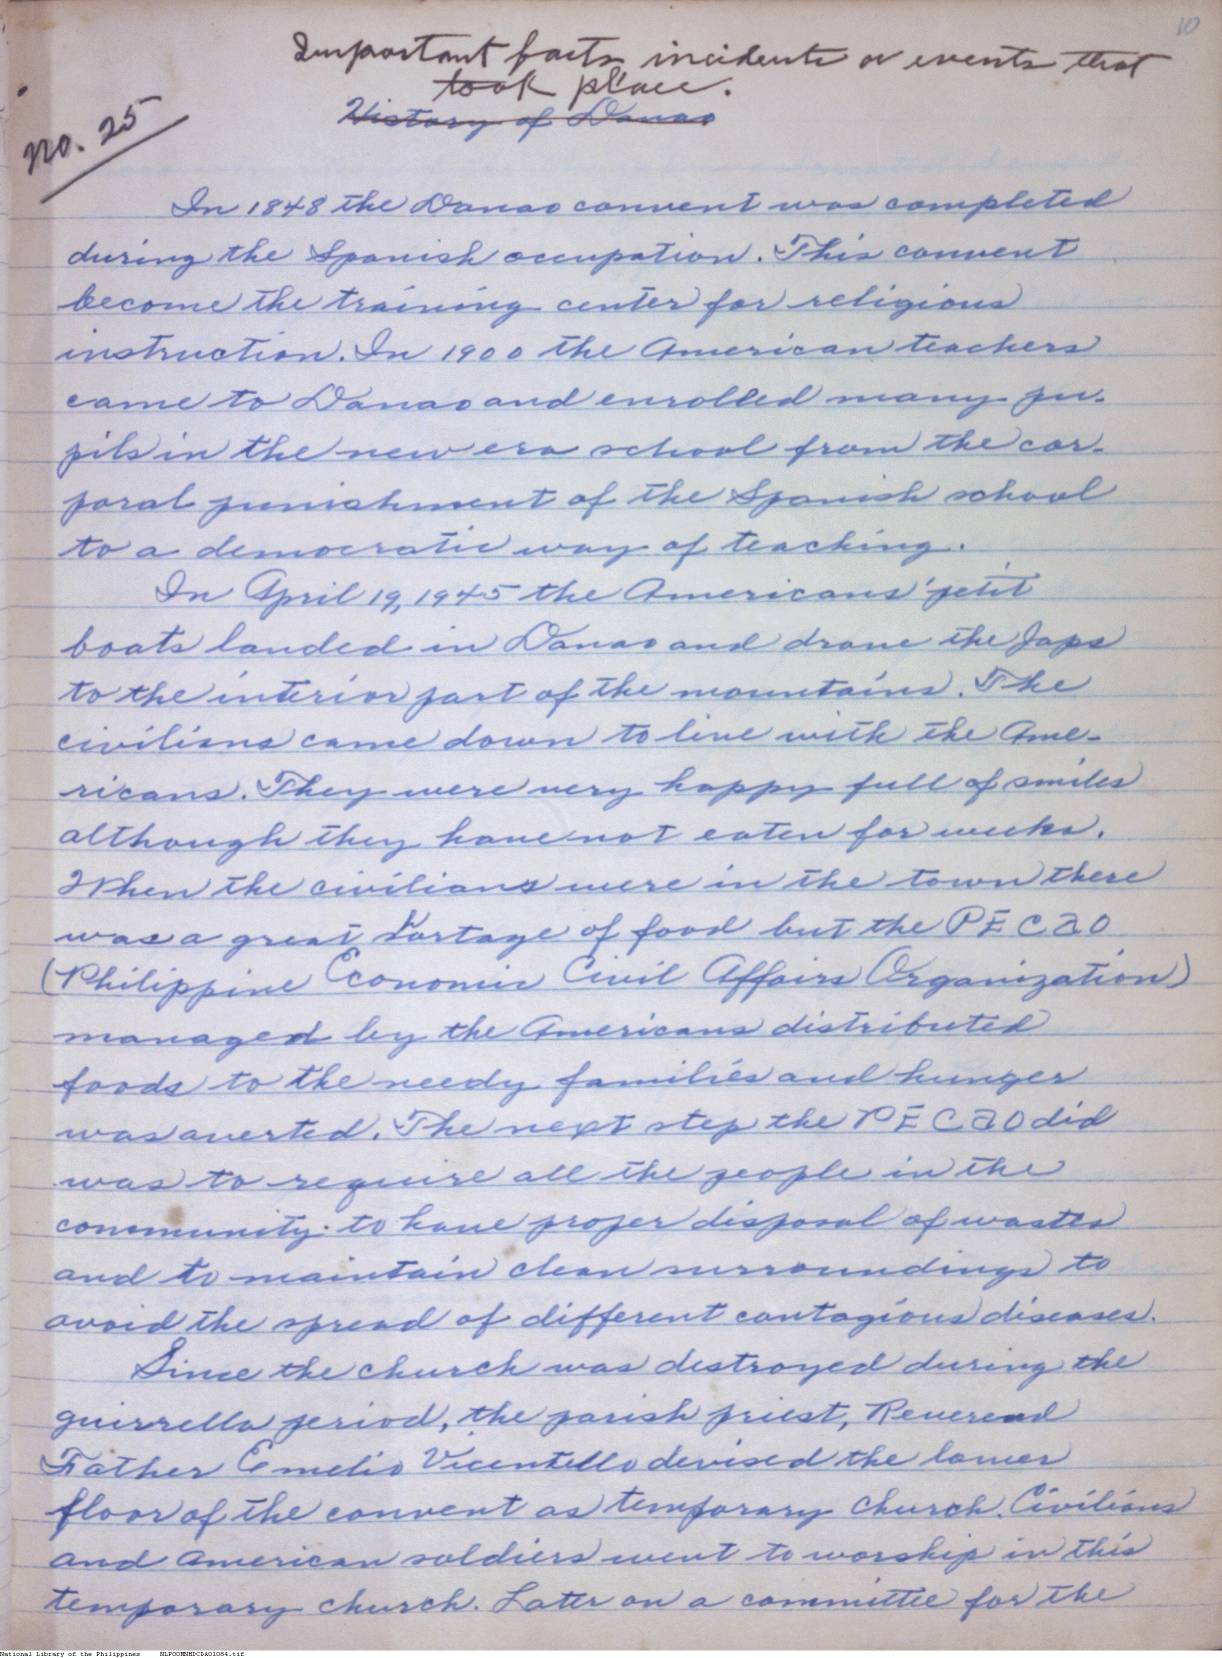 10
Important facts, incidents or events that
took place.
History of Danao
No. 25
In 1848 the Danao convent was completed
during the Spanish occupation. This convent
become the training center for religious
instruction. In 1900 the American teachers
came to Danao and enrolled many pu-
pils in the new era school from the cor-
poral punishment of the Spanish school
to a democratic way of teaching.
In April 19, 1945 the Americans' petit
boats landed in Danao and drove the Japs
to the interior part of the mountains. The
civilians came down to live with the Ame-
ricans. They were very happy full of smiles
although they have not eaten for weeks.
When the civilians were in the town there
was a great shortage of food but the PECAO
(Philippine Economic Civil Affairs Organization)
managed by the Americans distributed
foods to the needy families and hunger
was averted. The next step the PECAO did
was to require all the people in the
community to have proper disposal of wastes
and to maintain clean surroundings to
avoid the spread of different contagious diseases.
Since the church was destroyed during the
guirrella period, the parish priest, Reverend
Father Emelio Vicentello devised the lower
floor of the convent as temporary church. Civilians
and American soldiers went to worship in this
temporary church. Later on a committee for the
National Library of the Philippines NLPOOMNHDCDA01084.tif